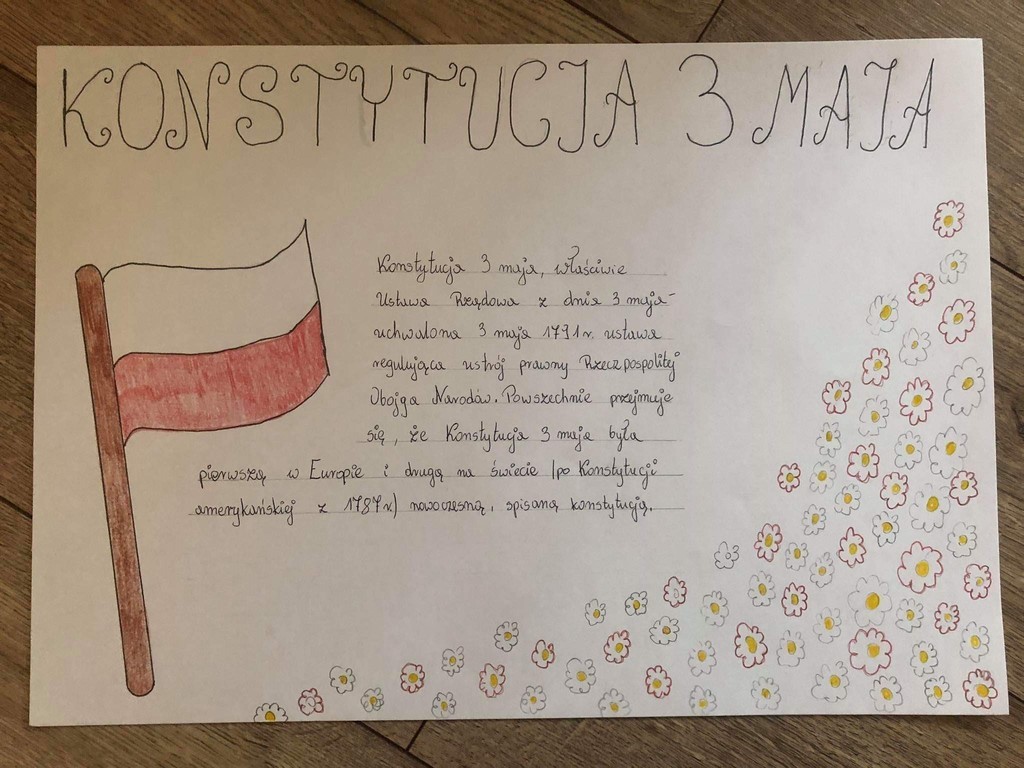 KONSTYTUCJA 3 MAJA
Konstytucja 3 maja, właściwie
Ustawa Rządowa z dnia 3 maja-
uchwalona 3 maja 1791r. ustawa
regulująca ustrój prawny Rzeczpospolitej
Obojga Narodów. Powszechnie przejmuje
się, że Konstytucja 3 maja była
pierwszą w Europie i drugą na świecie (po Konstytucji
amerykańskiej z 1787r.) nowoczesną, spisaną konstytucją.